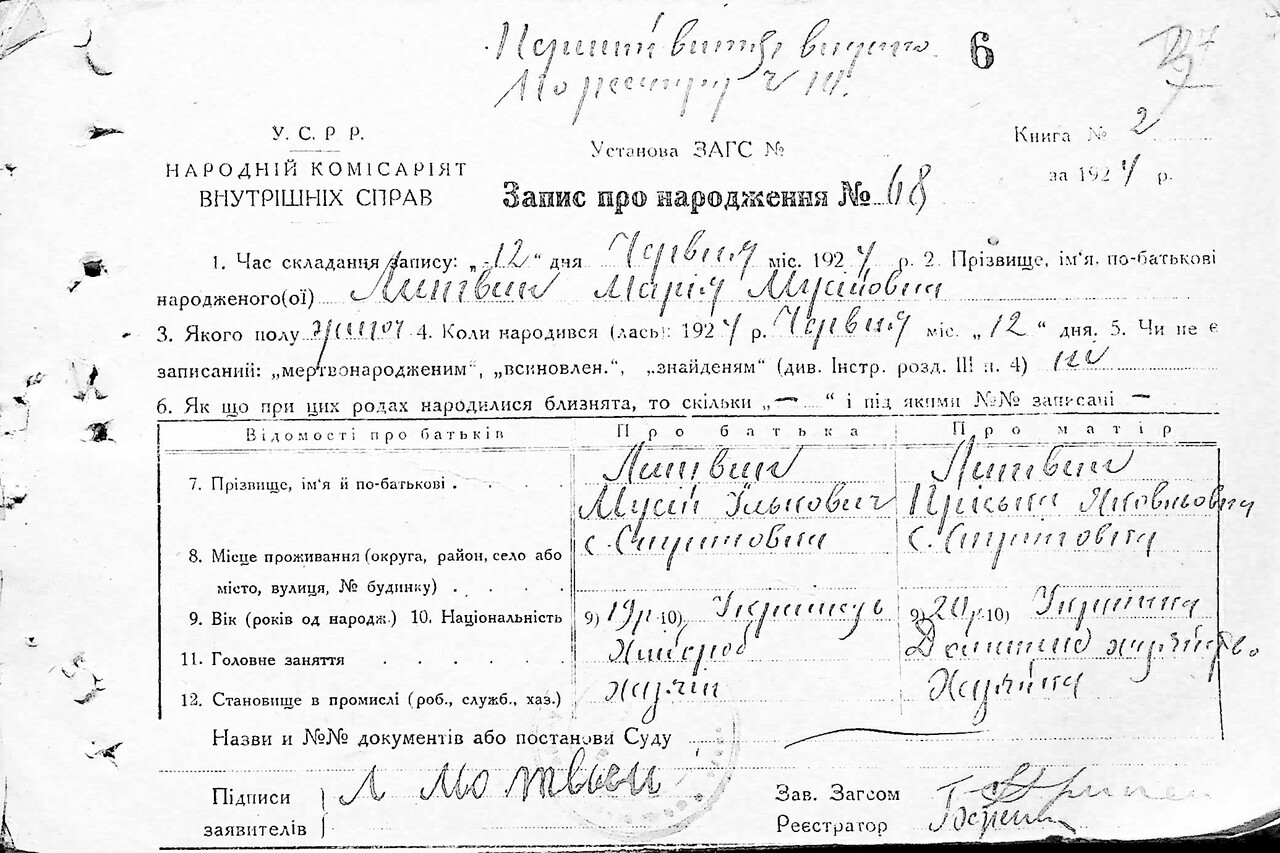 Перший витяг видано
По реєстру ч III.
6
У. С. Р. Р.
НАРОДНІЙ КОМІСАРІЯТ
ВНУТРІШНІХ СПРАВ
Установа ЗАГС №
Книга № 2
за 1924 р.
Запис про народження № 68
1. Час складання запису: „12“ дня Червня міс. 1924 р. 2. Прізвище, ім'я, по-батькові
народженого(ої) Литвин Марія Мусіївна
3. Якого полу жіноч 4. Коли народився (лась): 1924 р. Червня міс. „12“ дня. 5. Чи не є
записаний: „мертвонародженим“, „всиновлен.“, „знайденям“ (див. Інстр. розд. III п. 4) ні
6. Як що при цих родах народилися близнята, то скільки „—“ і під якими №№ записані —
Відомості про батьків Про батька Про матір
7. Прізвище, ім'я й по-батькові . . . . . Литвин Мусій Ількович Литвин Пріська Яковльовна
8. Місце проживання (округа, район, село або с. с.
місто, вулиця, № будинку) . . . .
9. Вік (років од народж.) 10. Національність 9) 19 р. 10) Українець 9) 20 р. 10) Українка
11. Головне заняття . . . . . . Хлібороб Домашнє хазяйство
12. Становище в промислі (роб., служб., хаз.) хазяїн Хазяйка
Назви и №№ документів або постанови Суду
Підписи
заявителів
Зав. Загсом
Реєстратор